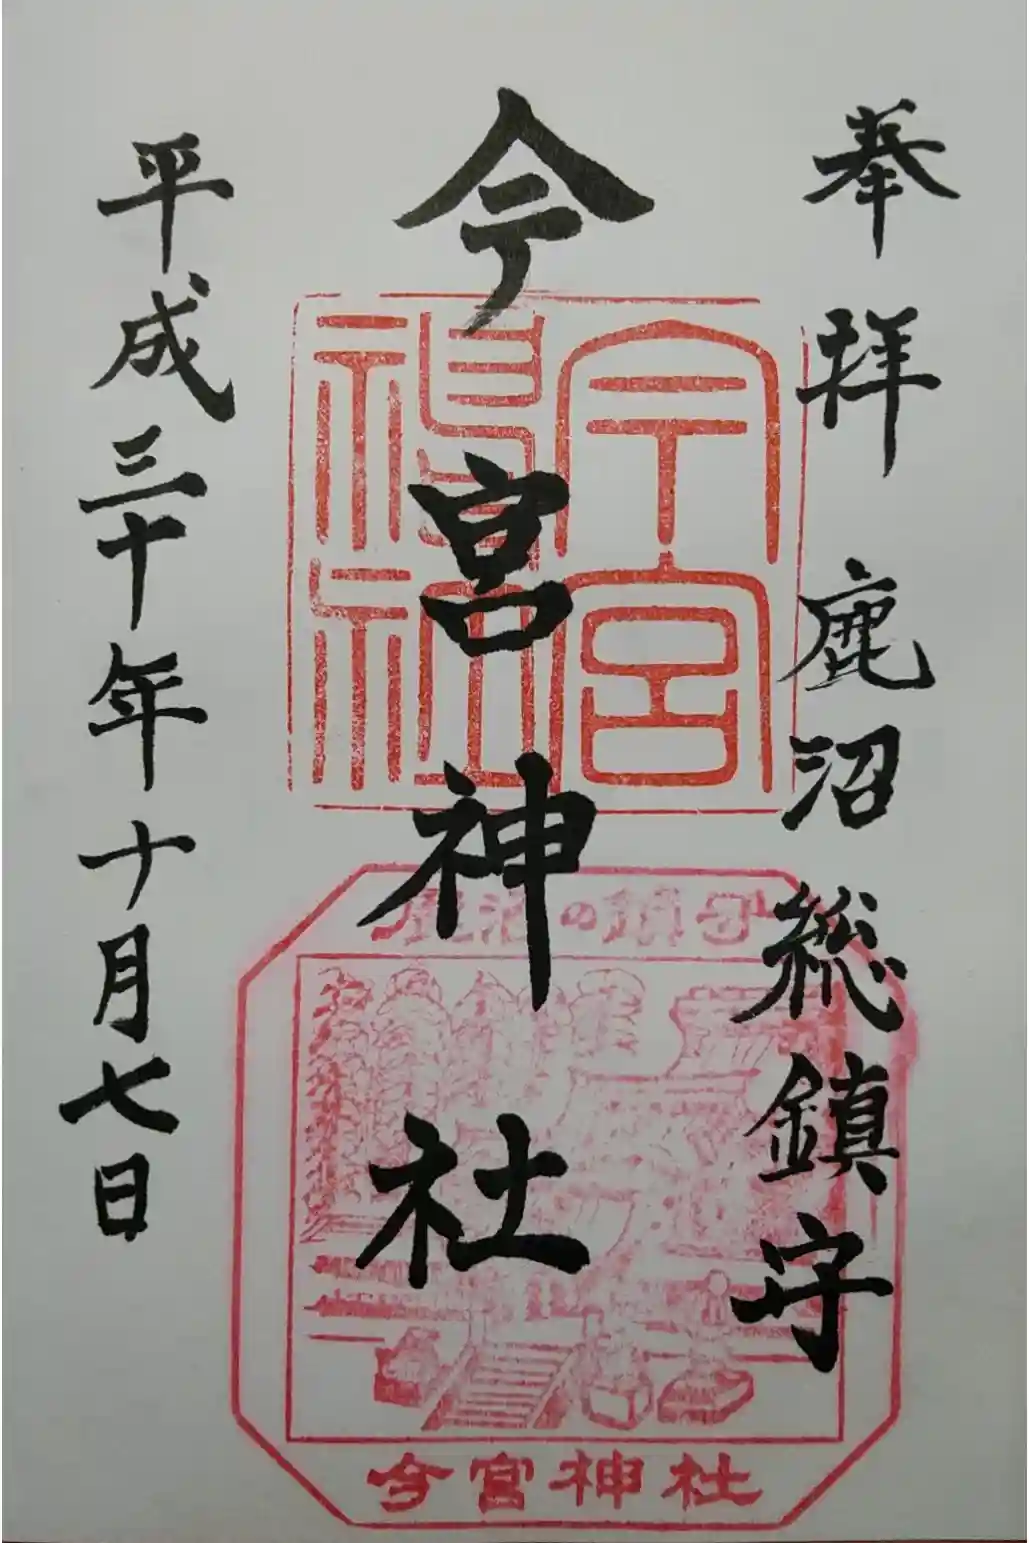 奉拝 鹿沼総鎮守
今宮神社
平成三十年十月七日
今宮神社
鹿沼の鎮守
今宮神社